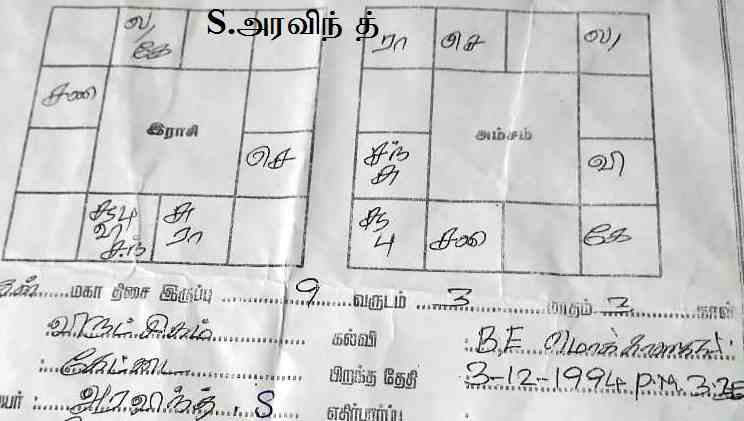 S.அரவிந் த்
ல/ ரா செ ல/
கே
சனி
இராசி அம்சம்
செ சந் வி
சு
சூ பு சு சூ சனி கே
வி ரா பு
சந்
மகா திசை இருப்பு 9 வருடம் 3 மாதம் நாள்
விருட்சிகம் கல்வி B.E
கேட்டை பிறந்த தேதி :3-12-1994 P.M. 3
யர் : அரவிந்த் . S எதிர்பார்ப்பு